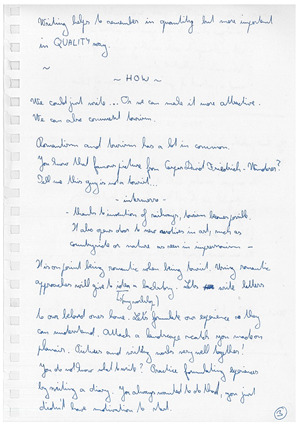 Writing helps to remember in quantity but more important
in QUALITY way.
~
~ HOW ~
We could just write... Or we can make it more attractive.
We can also connect tourism.
Romantism and tourism has a lot in common.
You know that famous picture from Caspar David Friedrich - Wanderer?
Tell me this guy is not a tourist...
- intermezzo -
- thanks to invention of railways, tourism became possible.
It also opens door to new in art, such as
countryside or nature as seen in impressionism -
It is on point being romantic when being tourist. Using romantic
approaches will give to idea a . Let's write letters
to our beloved ones home. Let's formulate our experience so they
can understand. Attach a landscape sketch you made on
plenair. Pictures and writing works very well together!
You do not know what to write? Practice formulating experiences
by writing a diary. You always wanted to do that, you just
didn't have motivation to start.
3